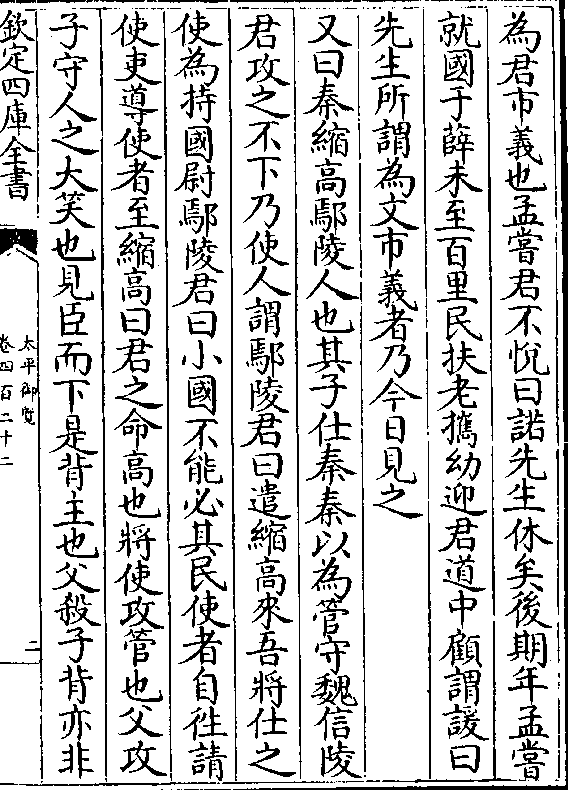 為君市義也孟嘗君不悅曰諾先生休矣後期年孟嘗
就國于薛未至百里民扶老攜幼迎君道中顧謂諼曰
先生所謂為文市義者乃今日見之
又曰秦縮高鄢陵人也其子仕秦秦以為管守魏信陵
君攻之不下乃使人謂鄢陵君曰遣縮高來吾將仕之
使為持國尉鄢陵君曰小國不能必其民使者自徃請
使吏導使者至縮高曰君之命高也將使攻管也父攻
子守人之大笑也見臣而下是背主也父殺子背亦非
欽定四庫全書
太平御覧
卷四百二十二
二